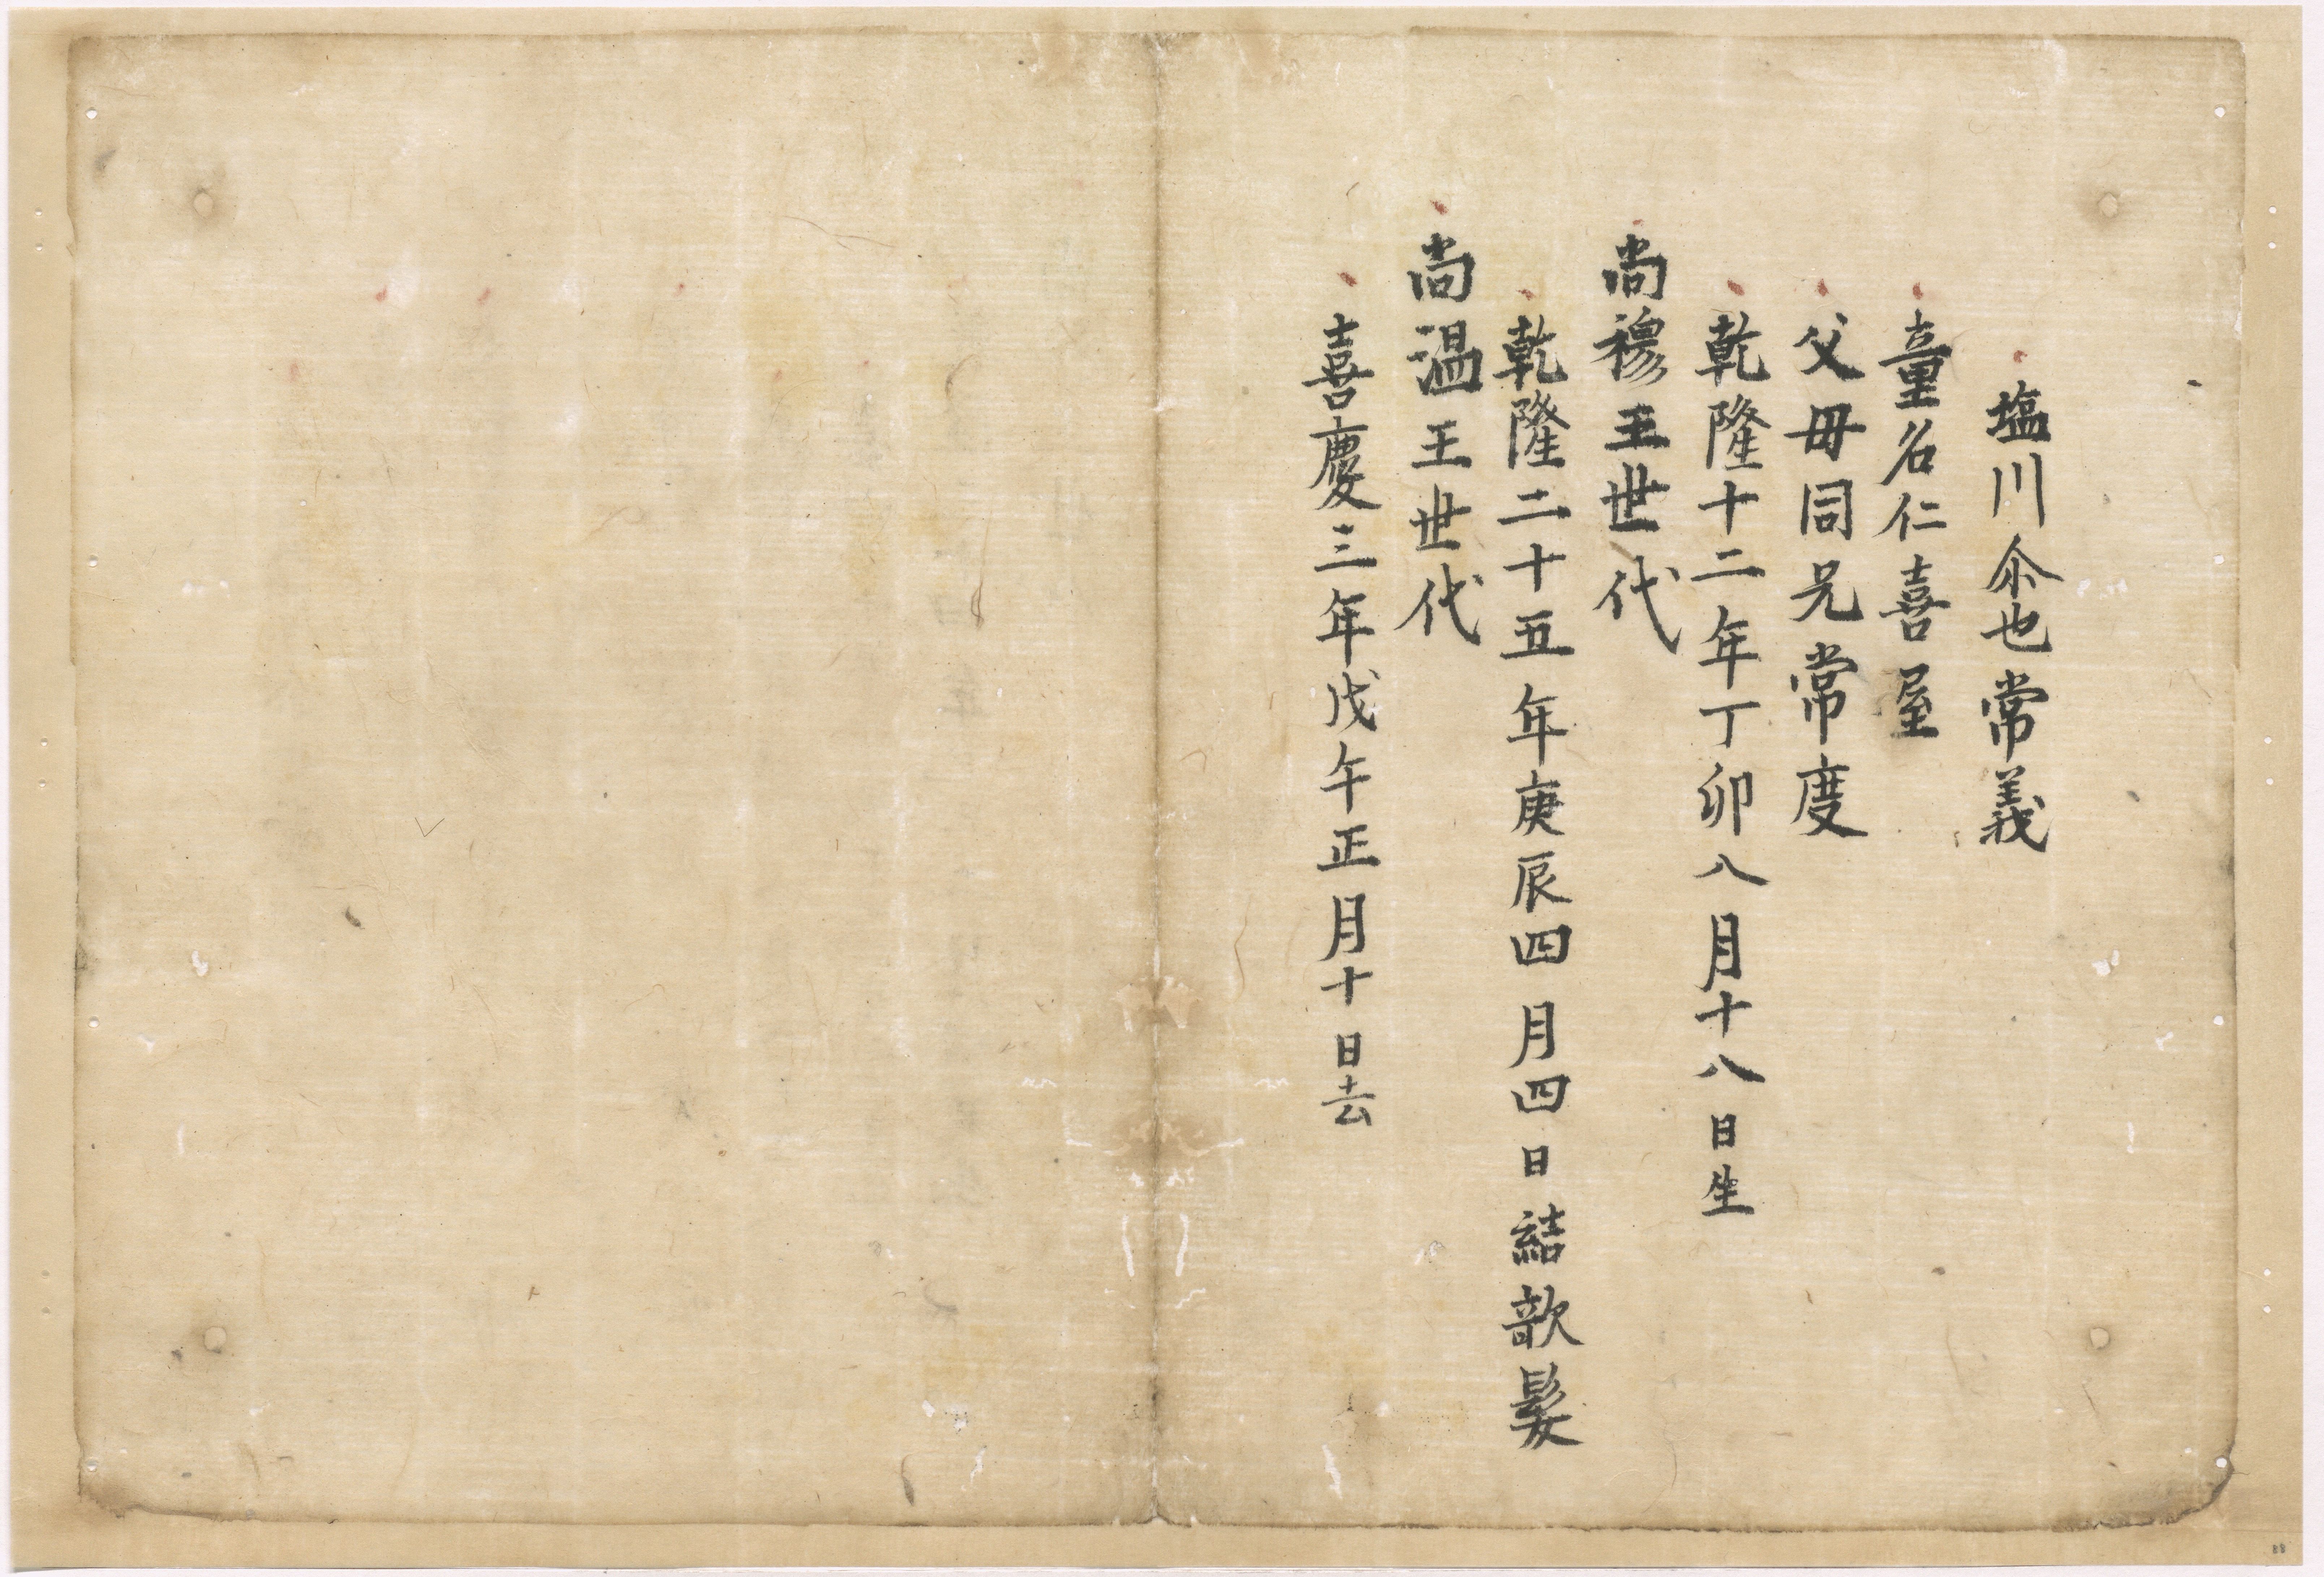 塩川尒也常義
童名仁喜屋
父毋同兄常度
乾隆十二年丁卯八月十八日生
尚穆王世代
乾隆二十五年庚辰四月四日結欹髮
尚温王世代
喜慶三年戊午正月十日去